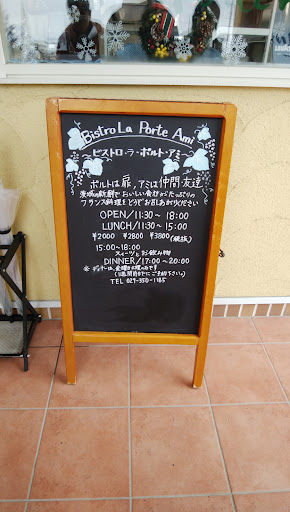 Bistro La Porte Ami
ビストロ・ラ・ポルト・アミ
ポルトは扉,アミは仲間・友達
茨城の新鮮でおいしい食材がたっぷりの
フランス料理をどうぞお召しあがりください!
OPEN/11:30~ 18:00
LUNCH/11:30~ 15:00
¥2000 ¥2800 ¥3800(税抜)
15:00~18:00
スィーツとお飲み物
DINNER/17:00~20:00
※ ディナーは、金曜日・土曜のみです
TEL 029-350-1185